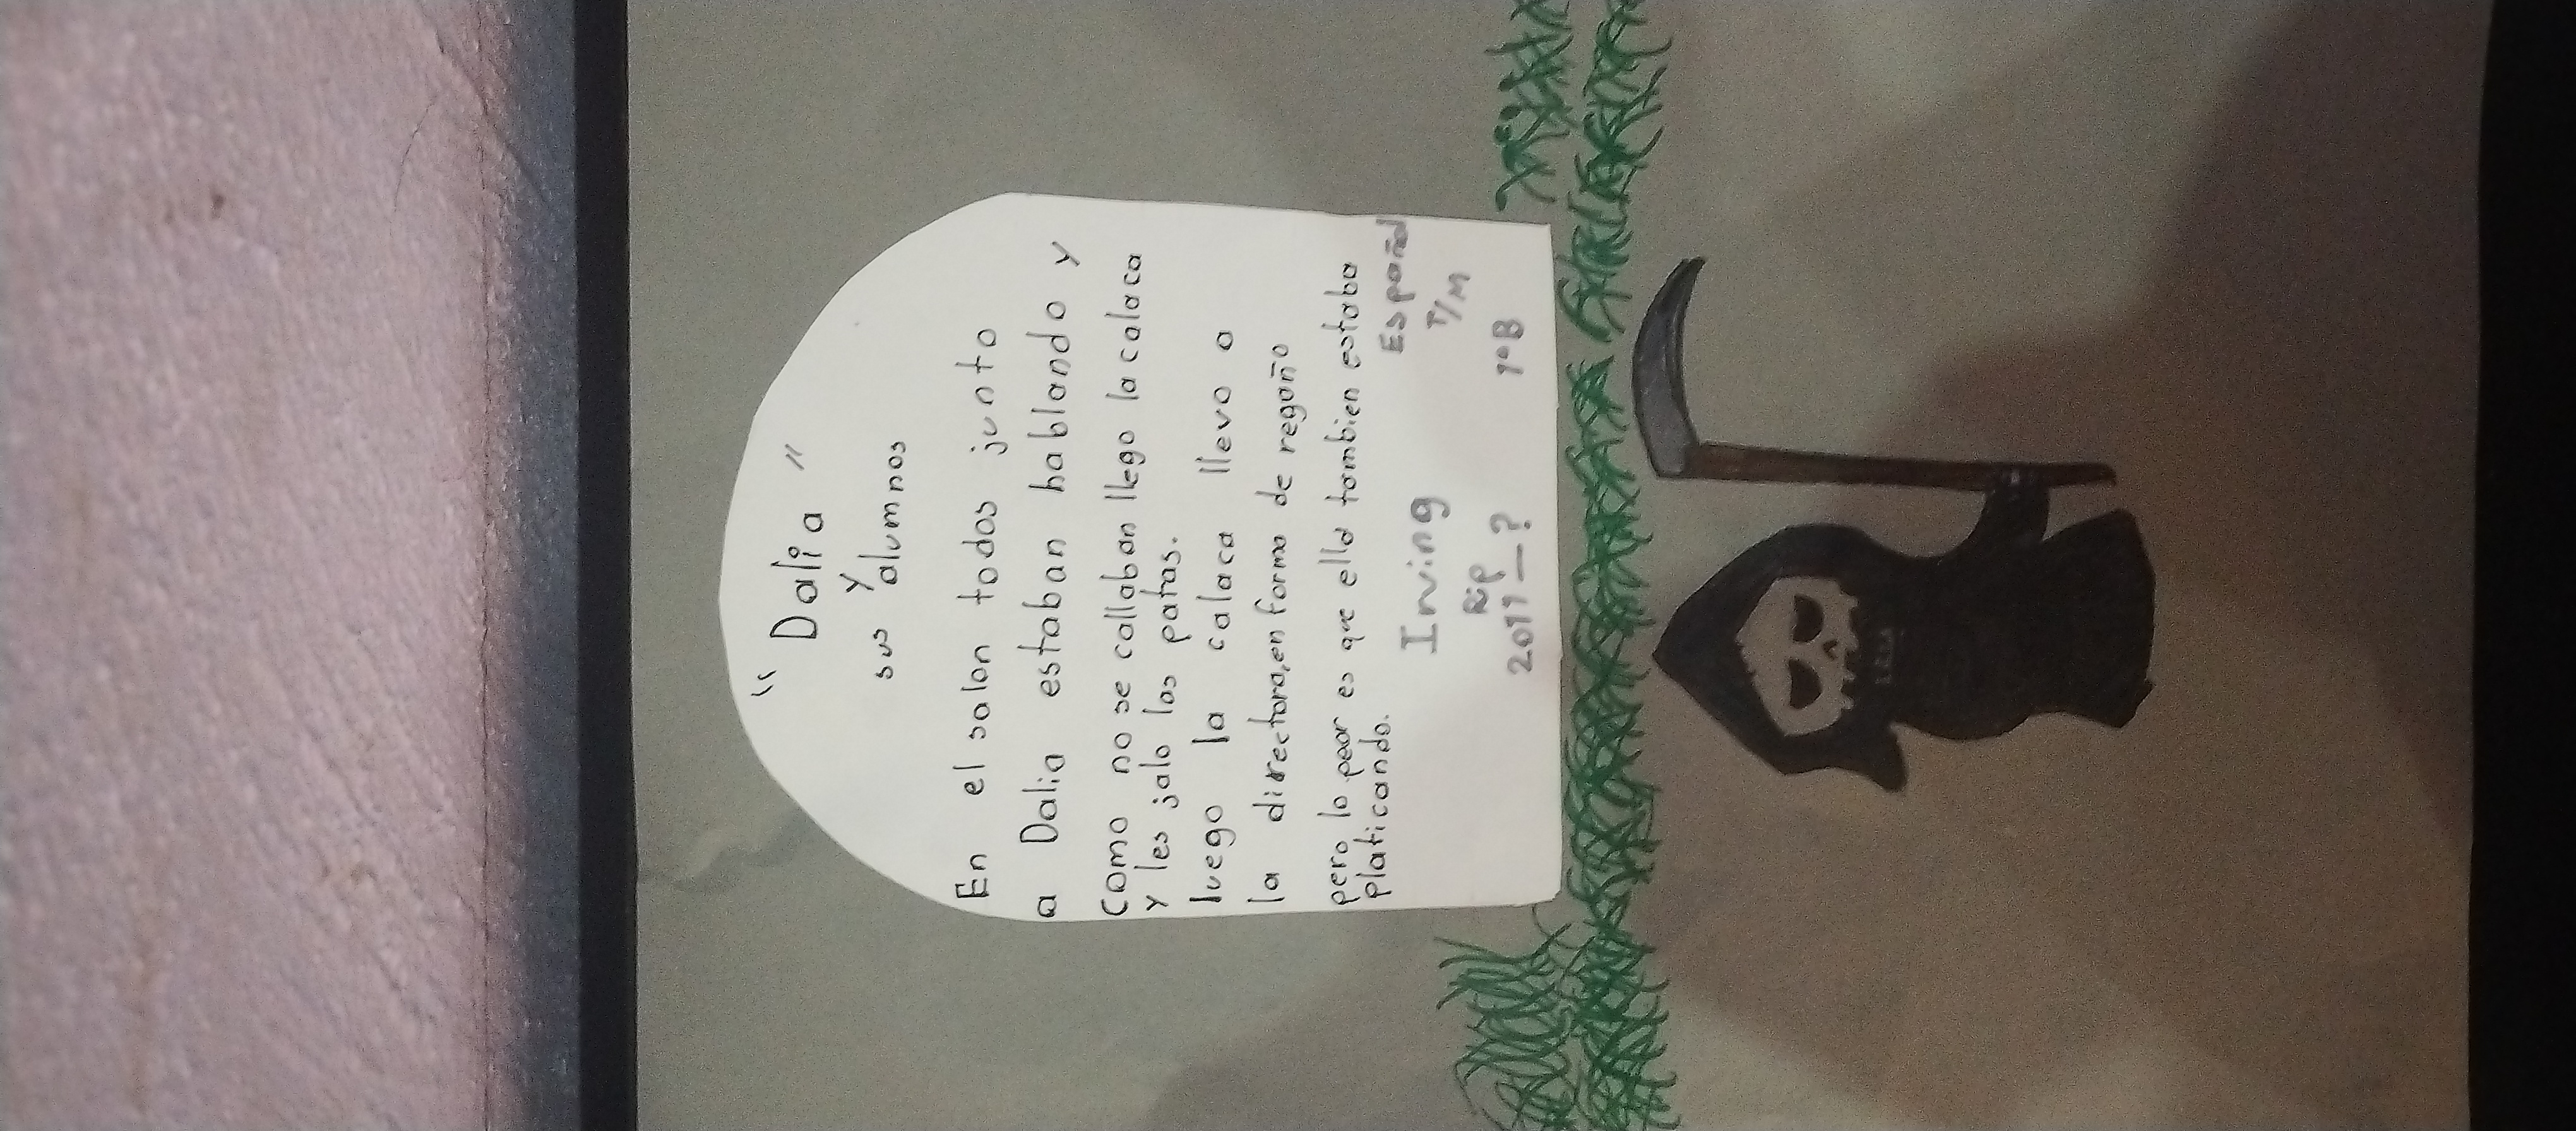 " Dalia "
y
sus alumnos
En el salon todos junto
a Dalia estaban hablando y
Como no se callaban llego la calaca
y les jalo las patas.
luego la calaca llevo a
la directora,en forma de regaño
pero lo peor es que ella tambien estaba
platicando.
Español
Irving T/M
Rip
2011—? 1°B